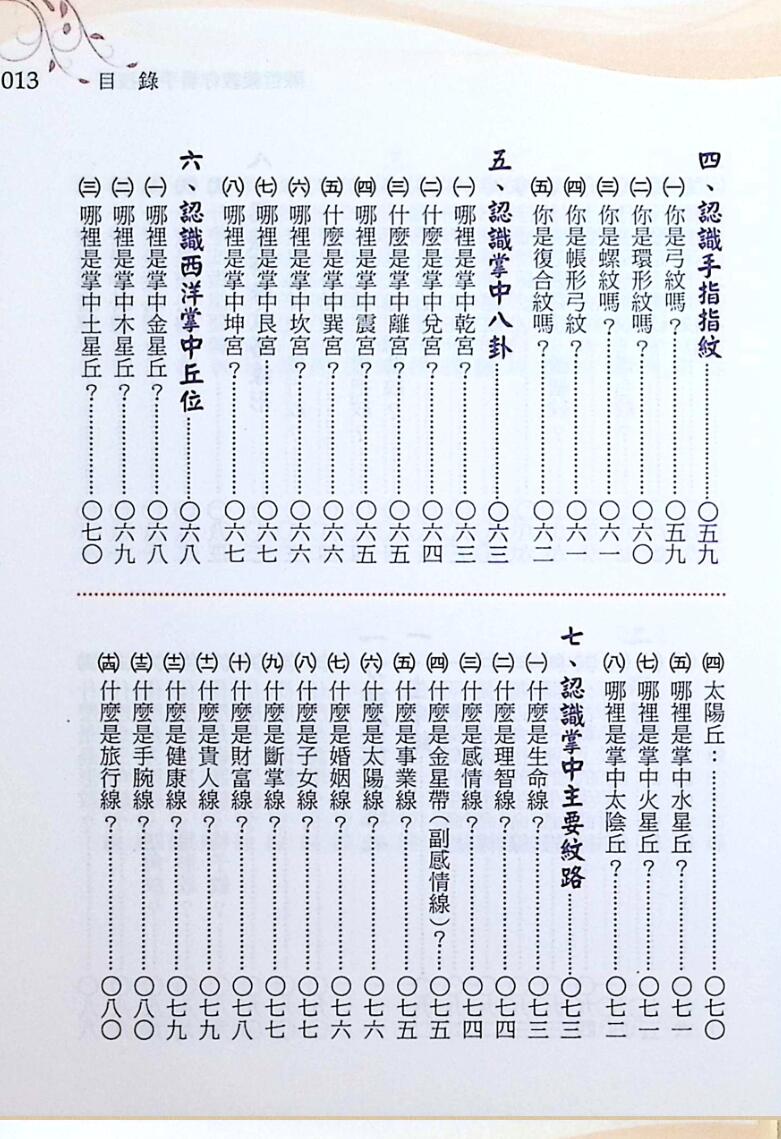 013
目 錄
四、認識手指指紋……〇五九
㈠你是弓紋嗎?……〇五九
㈡你是環形紋嗎?……〇六〇
㈢你是螺紋嗎?……〇六一
㈣你是帳形弓紋?……〇六一
㈤你是復合紋嗎?……〇六二
五、認識掌中八卦……〇六三
㈠哪裡是掌中乾宮?……〇六三
㈡什麼是掌中兌宮?……〇六四
㈢什麼是掌中離宮?……〇六五
㈣哪裡是掌中震宮?……〇六五
㈤什麼是掌中巽宮?……〇六六
㈥哪裡是掌中坎宮?……〇六六
㈦哪裡是掌中艮宮?……〇六七
㈧哪裡是掌中坤宮?……〇六七
六、認識西洋掌中丘位……〇六八
㈠哪裡是掌中金星丘?……〇六八
㈡哪裡是掌中木星丘?……〇六九
㈢哪裡是掌中土星丘?……〇七〇
㈣太陽丘:……〇七〇
㈤哪裡是掌中水星丘?……〇七一
㈦哪裡是掌中火星丘?……〇七一
㈧哪裡是掌中太陰丘?……〇七二
七、認識掌中主要紋路……〇七三
㈠什麼是生命線?……〇七三
㈡什麼是理智線?……〇七四
㈢什麼是感情線?……〇七四
㈣什麼是金星帶(副感情線)?……〇七五
㈤什麼是事業線?……〇七五
㈥什麼是太陽線?……〇七六
㈦什麼是婚姻線?……〇七六
㈧什麼是子女線?……〇七七
㈨什麼是斷掌線?……〇七七
㈩什麼是財富線?……〇七八
(十一)什麼是貴人線?……〇七九
(十二)什麼是健康線?……〇七九
(十三)什麼是手腕線?……〇八〇
(十四)什麼是旅行線?……〇八〇